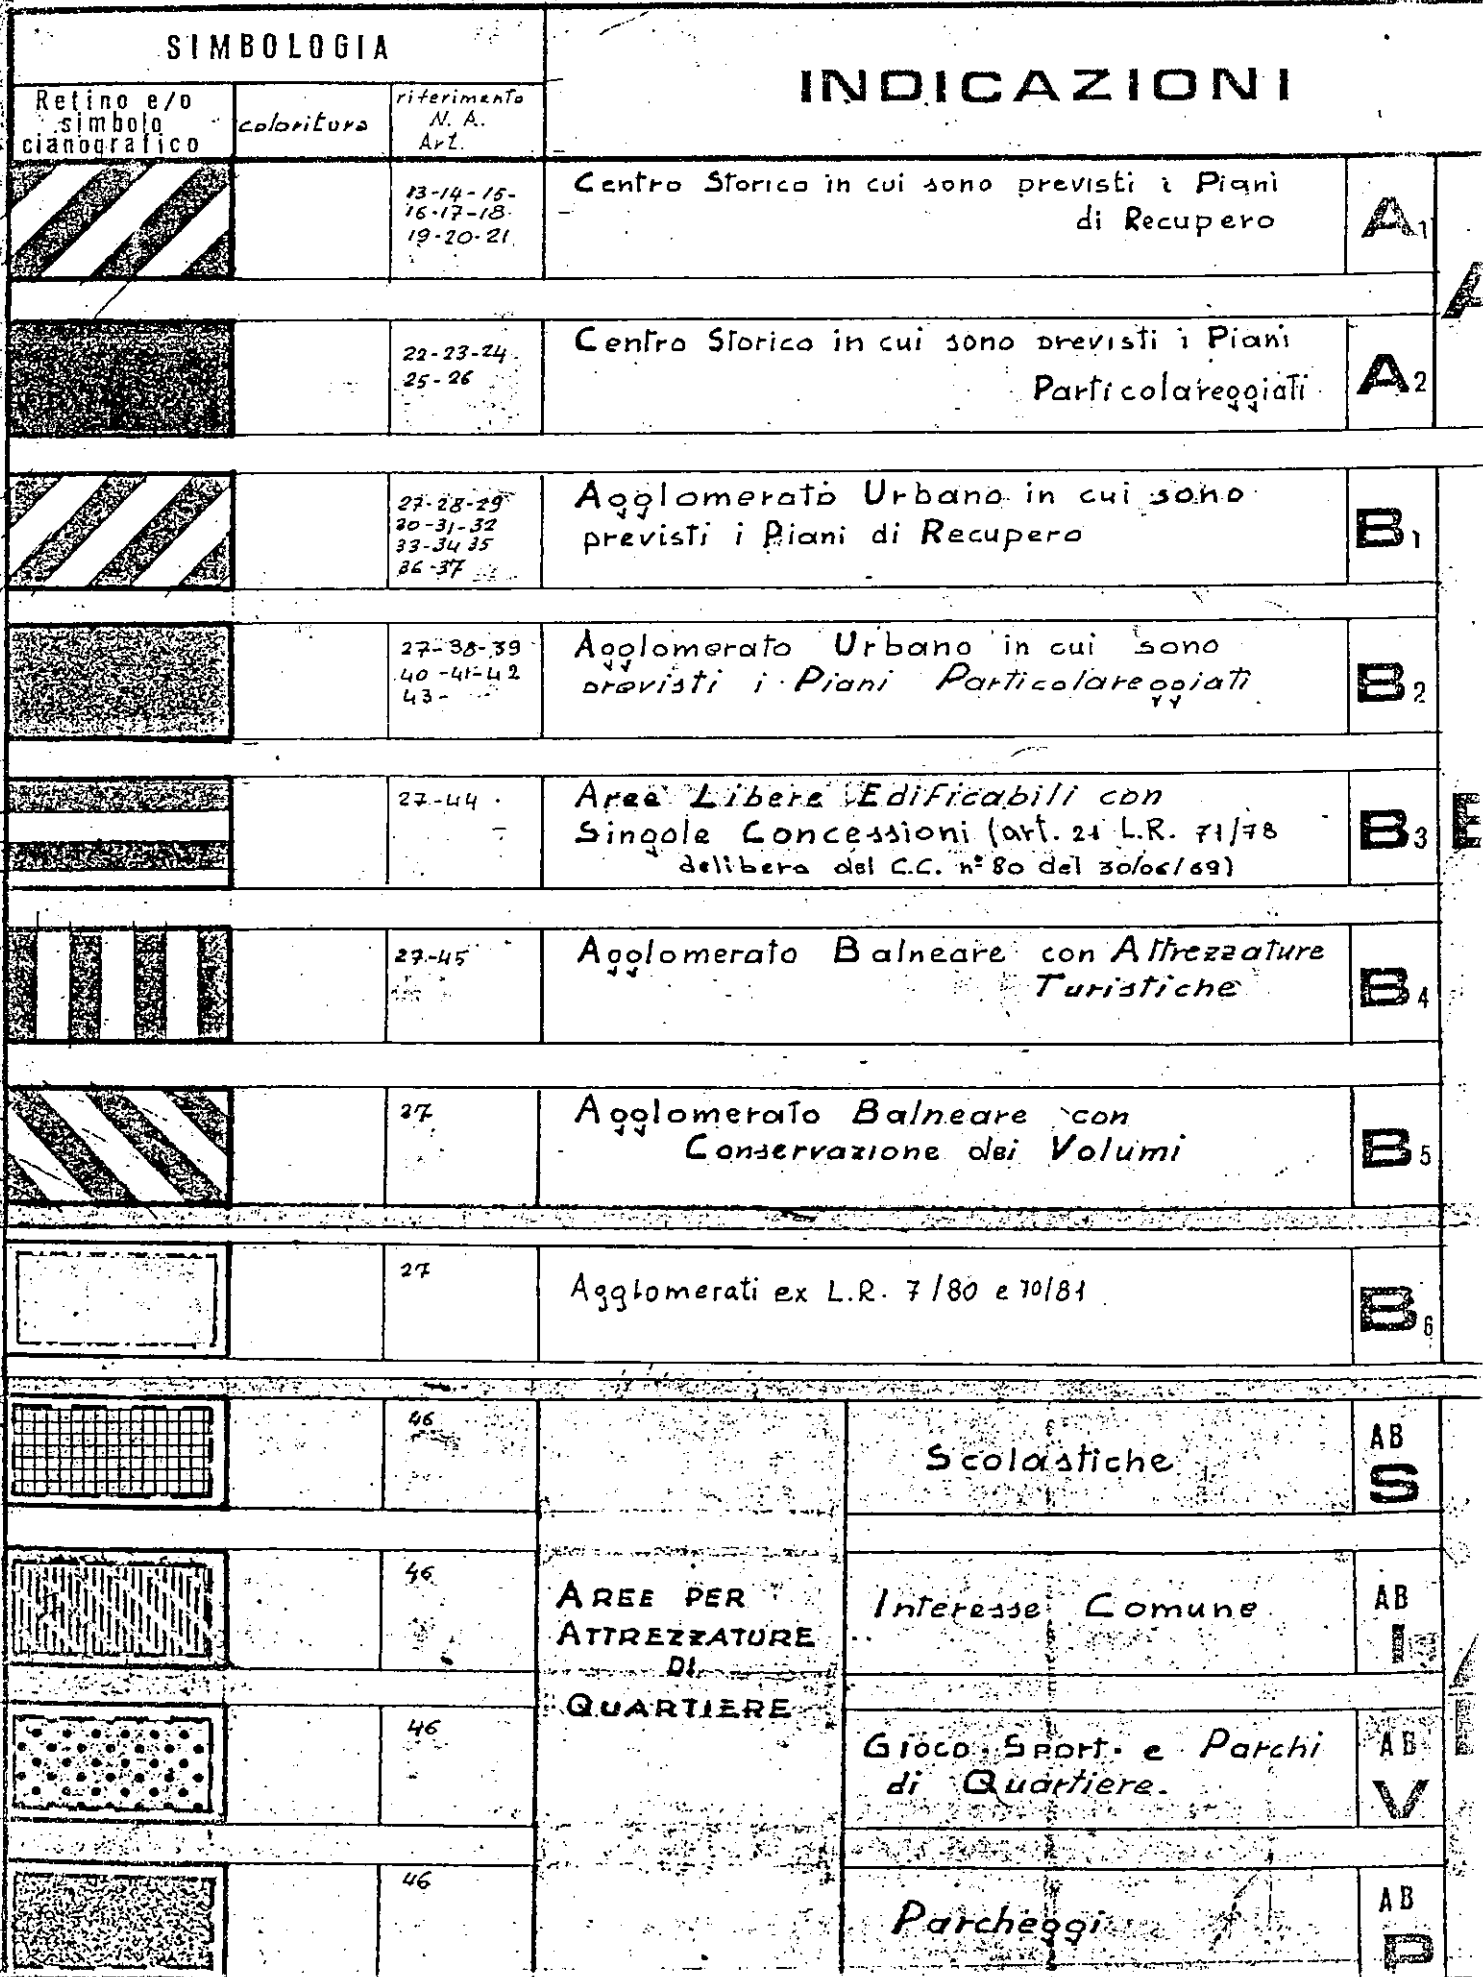 SIMBOLOGIA
INDICAZIONI
Retino e/o
simbolo
cianografico
coloritura
riferimento
N. A.
Art.
13-14-15-
16-17-18-
19-20-21
Centro Storico in cui sono previsti i Piani
di Recupero
A1
A
22-23-24-
25-26
Centro Storico in cui sono previsti i Piani
Particolareggiati
A2
27-28-29
30-31-32
33-34 35
36-37
Agglomerato Urbano in cui sono
previsti i Piani di Recupero
B1
27-38-39
40-41-42
43-
Agglomerato Urbano in cui sono
previsti i Piani Particolareggiati
B2
27-44
Aree Libere Edificabili con
Singole Concessioni (art. 21 L.R. 71/78
delibera del C.C. n° 80 del 30/06/89)
B3
27-45
Agglomerato Balneare con Attrezzature
Turistiche
B4
27
Agglomerato Balneare con
Conservazione dei Volumi
B5
27
Agglomerati ex L.R. 7/80 e 70/81
B6
46
Scolastiche
AB
S
46
AREE PER
ATTREZZATURE
DI
QUARTIERE
Interesse Comune
AB
I
46
Gioco Sport e Parchi
di Quartiere.
AB
V
46
Parcheggi
AB
P